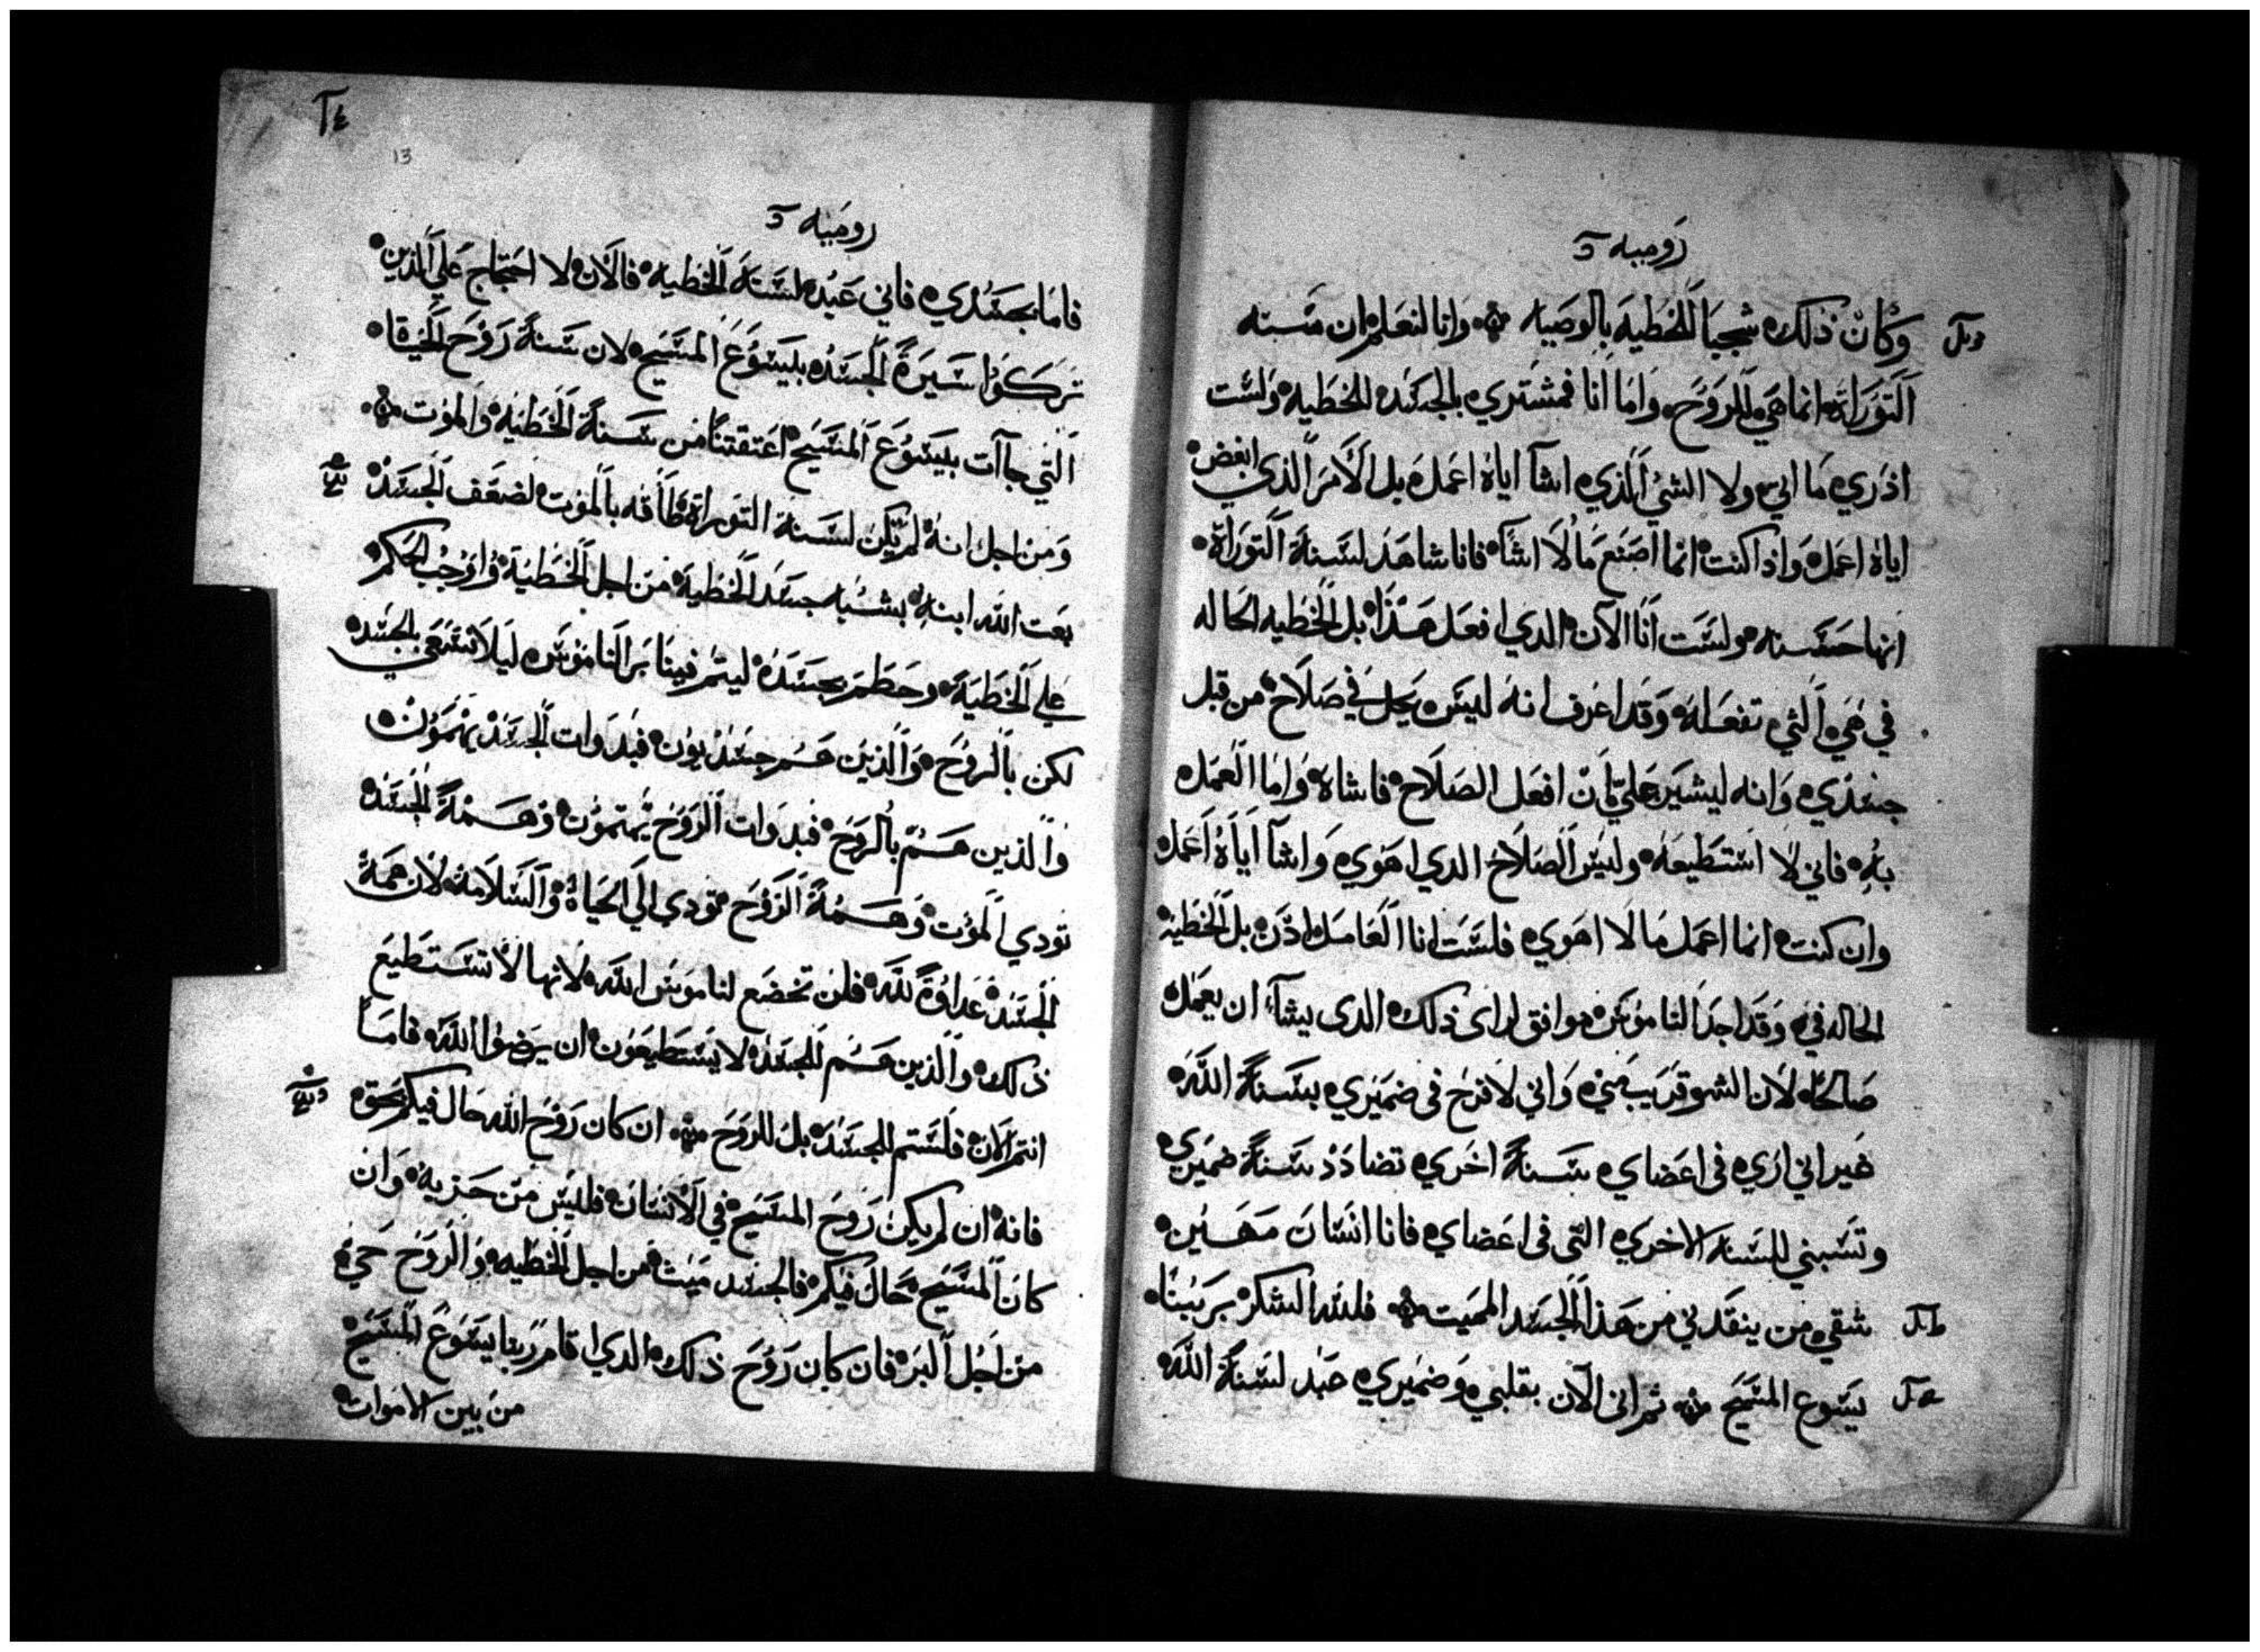 روميه
وكان ذلك شجبا للخطيه بالوصيه وانا لنعلم ان سنه
التوراة انما هي للروح واما انا فمشتري بالجسد للخطيه ولست
ادري ما اتي ولا الشي الذي اشآ اياه اعمل بل الامر الذي ابغض
اياه اعمل واذا كنت انما اصنع ما لا اشآ فانا شاهد لسنة التوراة
انها حسنه ولست انا الآن الدي افعل هذا بل الخطيه الحاله
في هي التي تفعله وقد اعرف انه ليس يحل في صلاح من قبل
جسدي وانه ليسير علي بان افعل الصلاح فاشاه واما العمل
به فاني لا استطيعه وليس الصلاح الدي اهوي واشآ اياه اعمل
وان كنت انما اعمل ما لا اهوي فلست انا العامل اذن بل الخطيه
الحاله في وقد اجد الناموس موافق لراى ذلك الدى يشآ ان يعمل
صالحا لان الشر قريب مني واني لافرح فى ضميري بسنة الله
غير اني اري فى اعضاي سنة اخري تضادد سنة ضميري
وتسبني للسنه الاخري التى فى اعضاي فانا انسان مهين
شقي من ينقدني من هذا الجسد المميت فلله الشكر بربنا
يسوع المسيح ثم انى الآن بقلبي وضميري عبد لسنة الله
13
روميه
فاما بجسدي فاني عبد لسنة الخطيه فالان لا احتجاج علي الذين
تركوا سيرة الجسد بيسوع المسيح لان سنة روح الحيقا
التي جاآت بيسوع المسيح اعتقتنا من سنة الخطيه والموت
ومن اجل انه لم يكن لسنة التوراة طاقه بالموت لضعف الجسد
بعت الله ابنه بشبه جسد الخطية من اجل الخطية واوجب الحكم
علي الخطية وحطم بجسده ليتم فينا بر الناموس ليلا نسعي بالجسد
لكن بالروح والذين هم جسديون فبدوات الجسد يهمون
والذين هم بالروح فبدوات الروح يهتمون وهمة الجسد
تودي الموت وهمة الروح تودي الي الحياة والسلامه لان همة
الجسد عداوة لله فلن تخضع لناموس الله لانها لا تستطيع
ذلك والذين هم للجسد لا يستطيعون ان يرضوا الله فاما
انتم الان فلستم للجسد بل للروح ان كان روح الله حال فيكم بحق
فانه ان لم يكن روح المسيح في الانسان فليس من حزبه وان
كان المسيح حال فيكم فالجسد ميت من اجل الخطيه والروح حي
من اجل البر فان كان روح ذلك الدي اقام ربنا يسوع المسيح
من بين الاموات